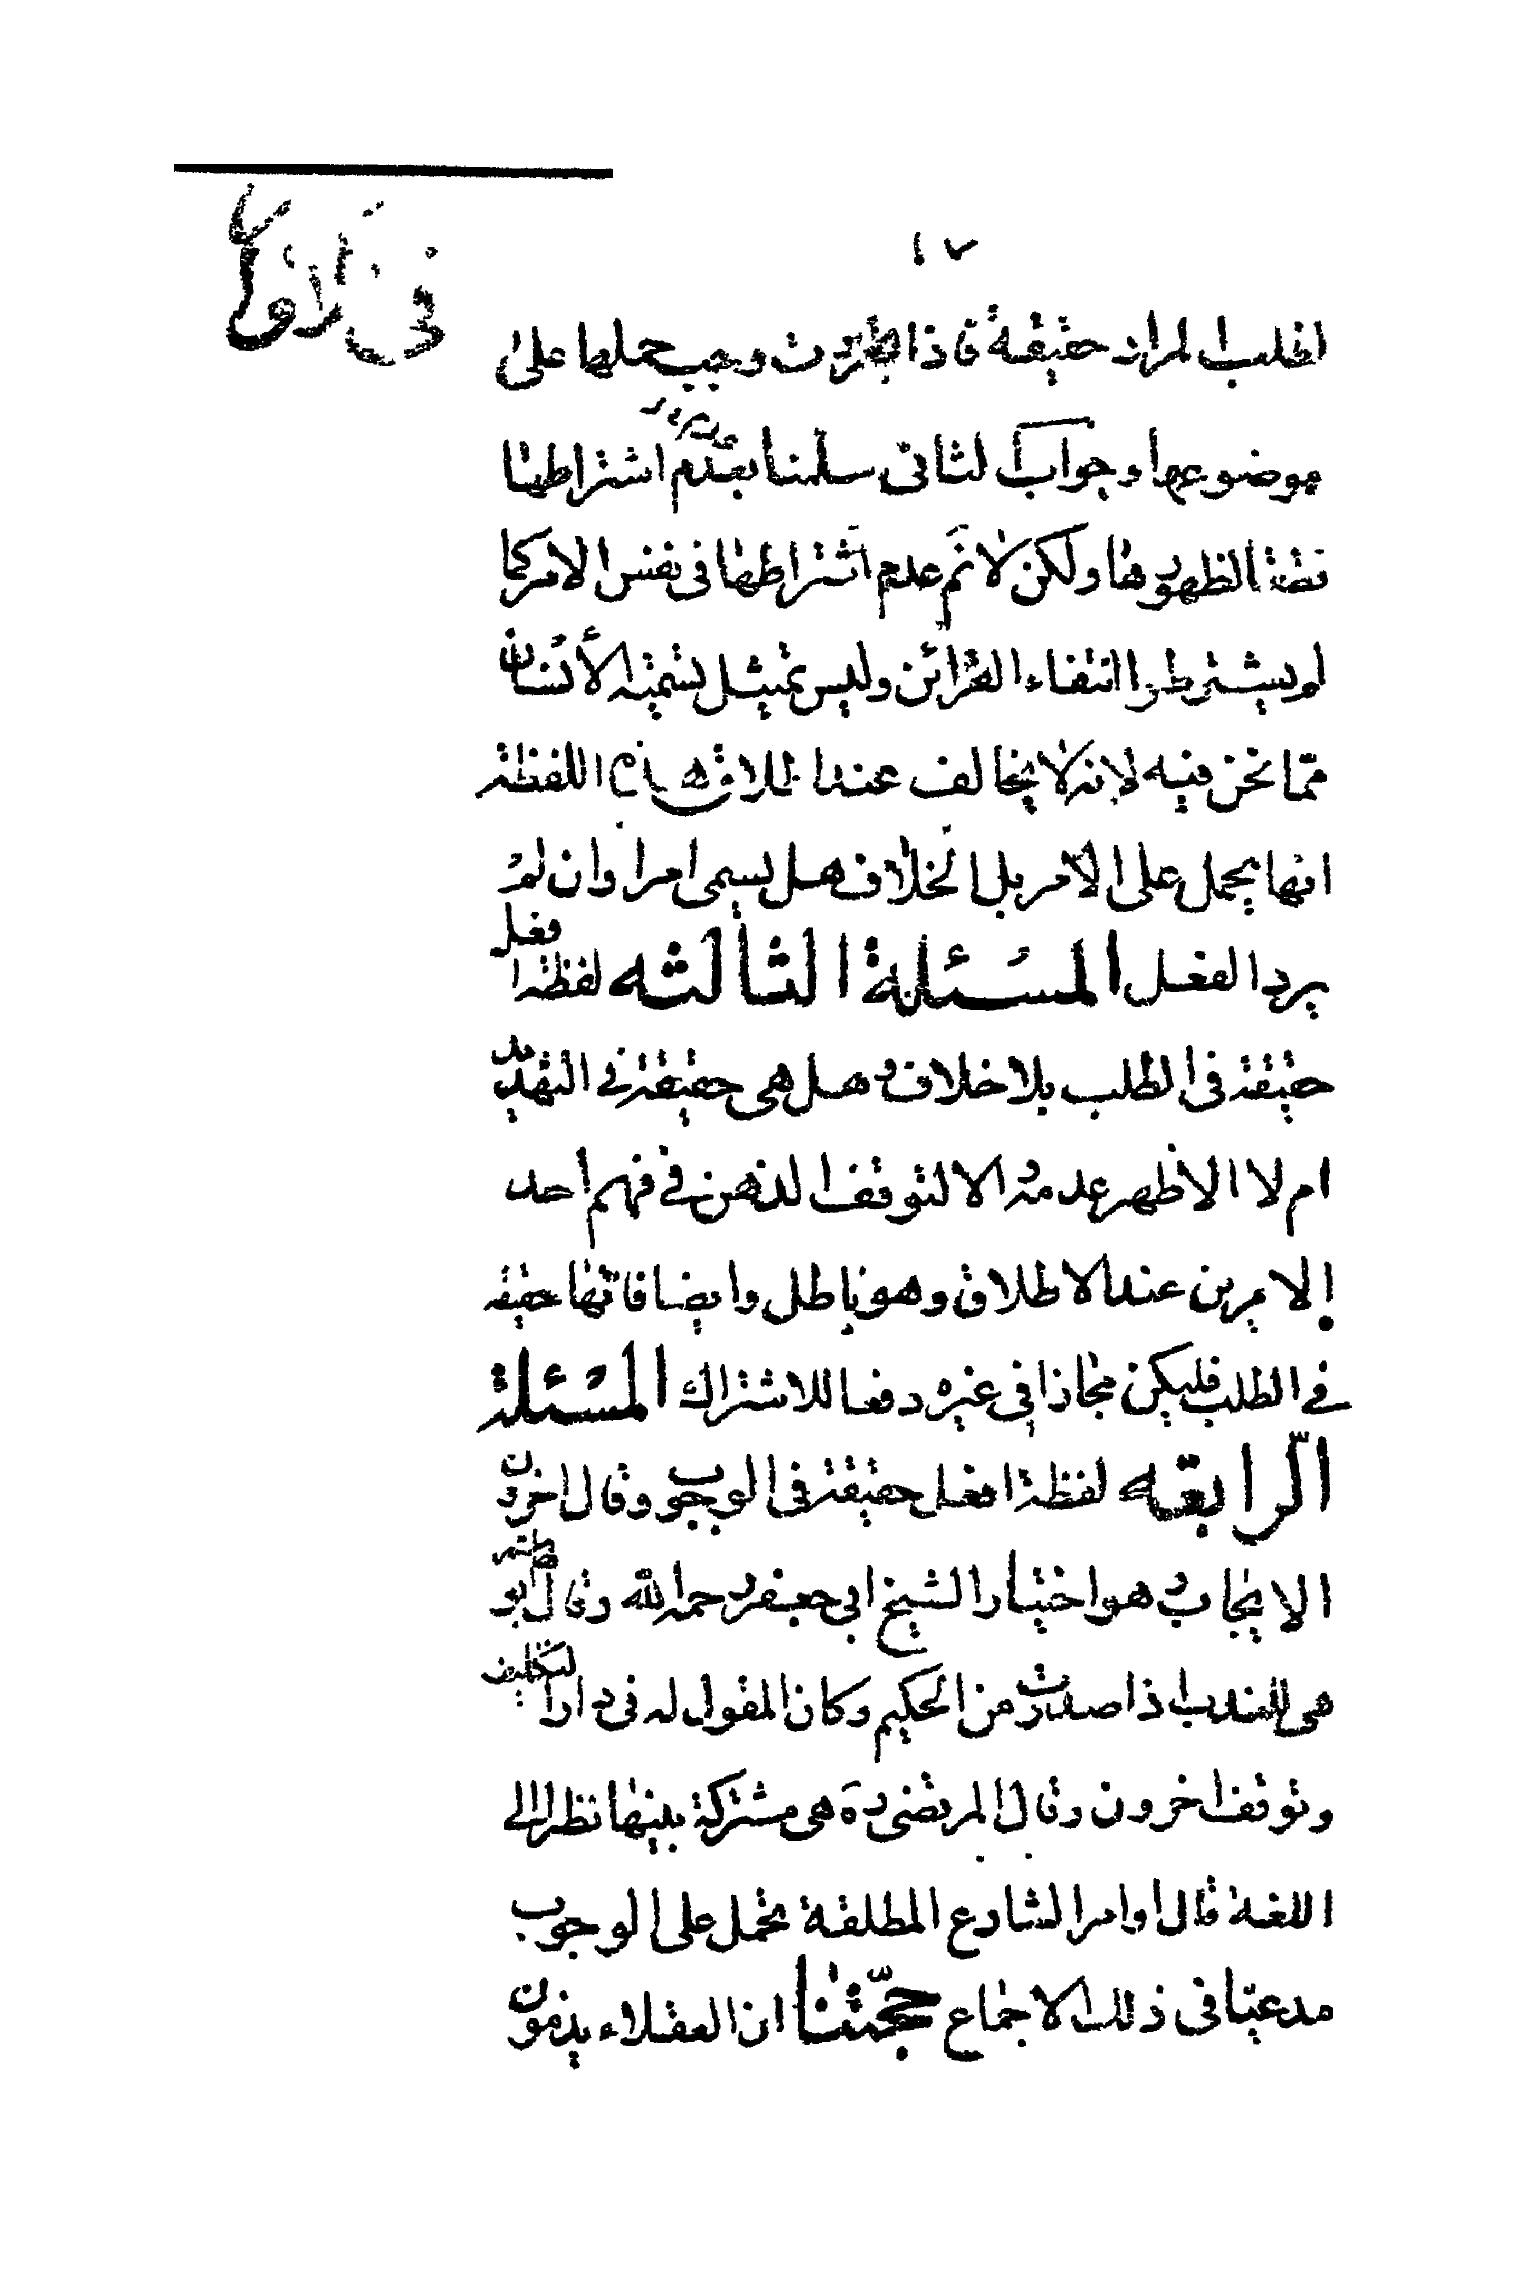 ١٧
في الاوا
الطلب المراد حقيقة فاذا ظهرت وجب حملها على
موضوعها وجواب الثاني سلمنا بعدم اشتراطها
فقة الظهورها ولكن لا نم عدم اشتراطها في نفس الامر كما
لو يشترطوا انتفاء القرائن وليس تمثيل تسمية الانسان
مما نحن فيه لانه لا يخالف عند اطلاق هذه اللفظة
انها يحمل على الامر بل الخلاف هل يسمى امرا وان لم
يرد الفعل المسئلة الثالثه لفظة افعل
حقيقة في الطلب بلا خلاف وهل هي حقيقة في التهديد
ام لا الاظهر عدمه والا لتوقف الذهن في فهم احد
الامرين عند الاطلاق وهو باطل وايضا فانها حقيقة
في الطلب فليكن مجازا في غيره دفعا للاشتراك المسئلة
الرابعه لفظة افعل حقيقة في الوجوب وقال اخرون
الايجاب وهو اختيار الشيخ ابي جعفر رحمه الله وقال ابو
هي للندب اذا صدرت من الحكيم وكان المقول له في دار التكليف
وتوقف اخرون وقال المرتضى ره هي مشتركة بينها نظرا الى
اللغة قال اوامر الشارع المطلقة تحمل على الوجوب
مدعيا في ذلك الاجماع حجتنا ان العقلاء يذمون